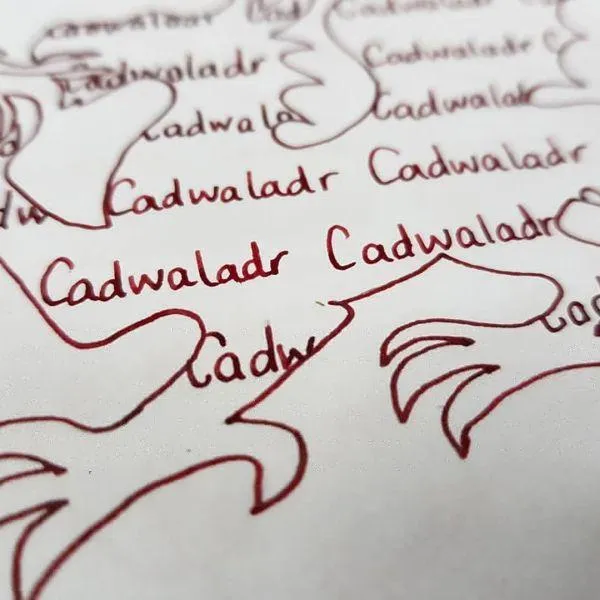 Cadwaladr Cad Cadwaladr
Cadwaladr Cadwaladr C
Cadwala Cadwalad
dw Cadwaladr Cadwaladr
Cadwaladr Cadwaladr
Cadw Cad